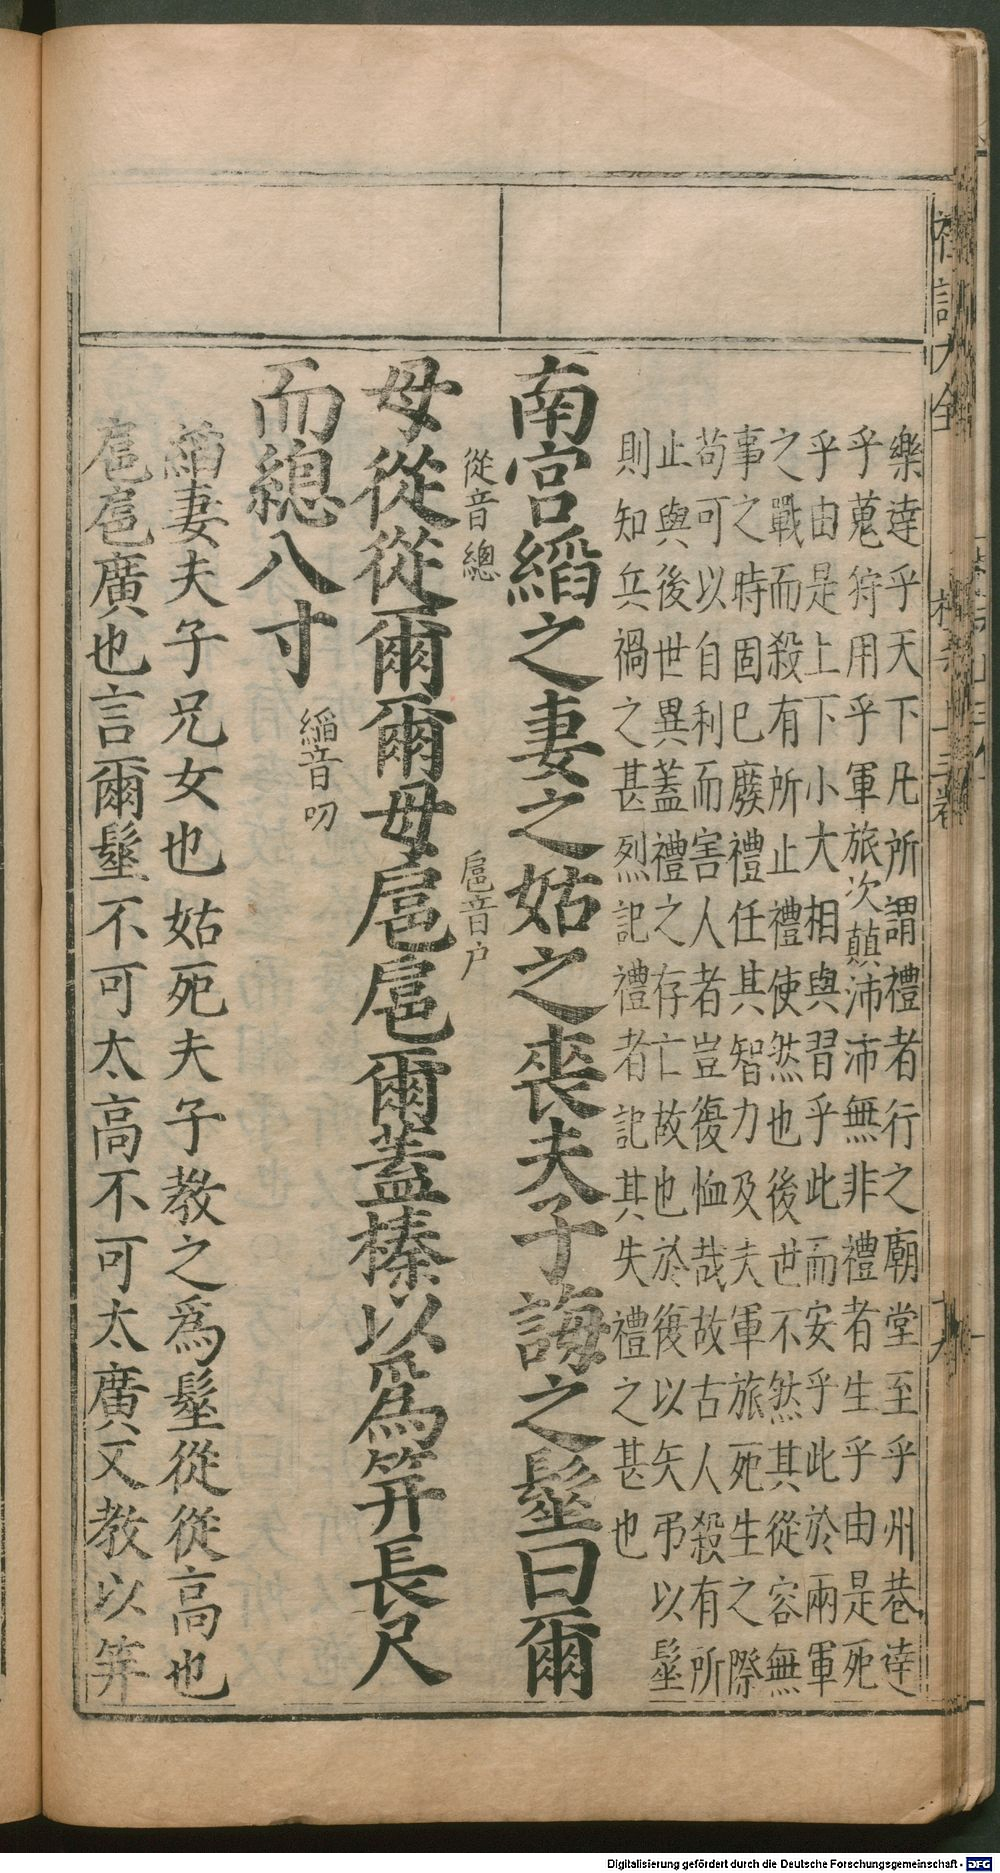 樂達乎天下凡所謂禮者行之廟堂至乎州巷達
乎蒐狩用乎軍旅次顛沛沛無非禮者生乎由是死
乎由是上下小大相與習乎此而安乎此於兩軍
之戰而殺有所止禮使然也後世不然其從容無
事之時固已廢禮任其智力及夫軍旅死生之際
苟可以自利而害人者豈復恤哉故古人殺有所
止與後世異蓋禮之存亡故也於復以矢弔以髽
則知兵禍之甚烈記禮者記其失禮之甚也
南宮縚之妻之姑之喪夫子誨之髽曰爾
從音總
扈音户
母從從爾爾毋扈扈爾蓋榛以爲笄長尺
而總八寸
縚音叨
縚妻夫子兄女也姑死夫子教之爲髽從從高也
扈扈廣也言爾髽不可太高不可太廣又教以笄
Digitalisierung gefördert durch die Deutsche Forschungsgemeinschaft - DFG